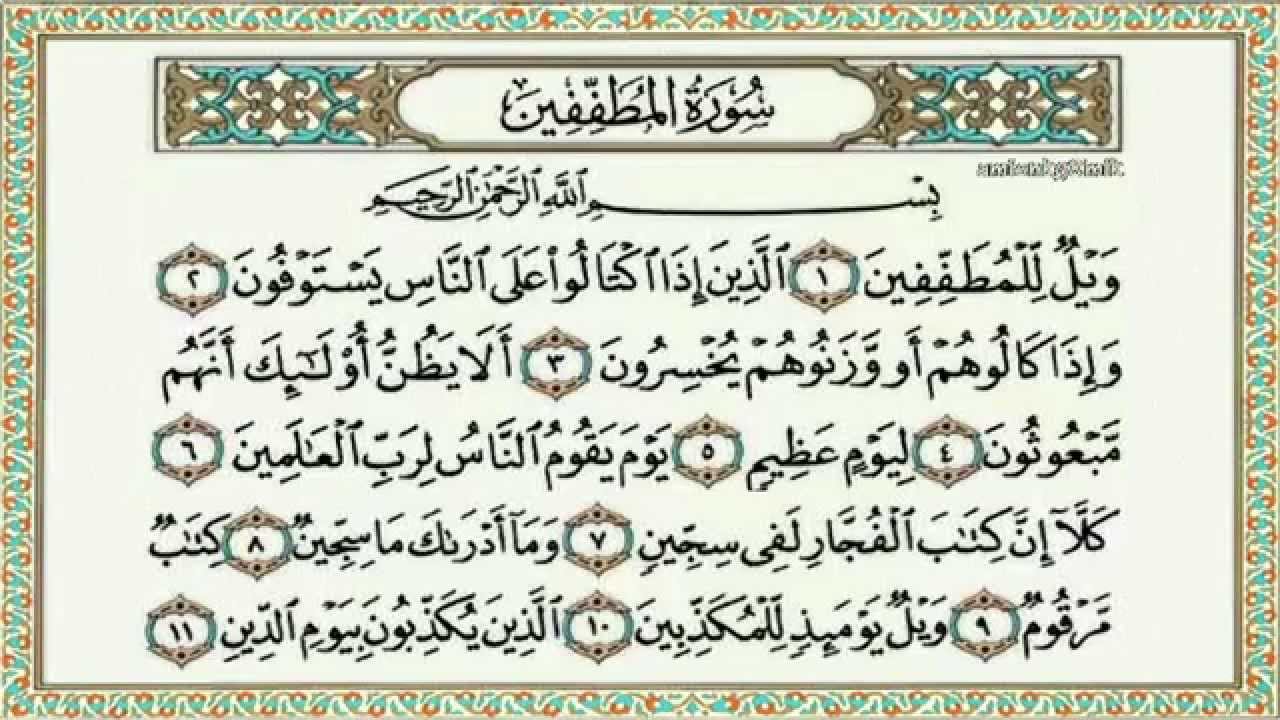 سُورَةُ المُطَفِّفِينَ
بِسۡمِ ٱللَّهِ ٱلرَّحۡمَٰنِ ٱلرَّحِيمِ
وَيۡلٌ لِّلۡمُطَفِّفِينَ ١ ٱلَّذِينَ إِذَا ٱكۡتَالُواْ عَلَى ٱلنَّاسِ يَسۡتَوۡفُونَ ٢
وَإِذَا كَالُوهُمۡ أَو وَّزَنُوهُمۡ يُخۡسِرُونَ ٣ أَلَا يَظُنُّ أُوْلَٰٓئِكَ أَنَّهُم
مَّبۡعُوثُونَ ٤ لِيَوۡمٍ عَظِيمٖ ٥ يَوۡمَ يَقُومُ ٱلنَّاسُ لِرَبِّ ٱلۡعَٰلَمِينَ ٦
كَلَّآ إِنَّ كِتَٰبَ ٱلۡفُجَّارِ لَفِي سِجِّينٖ ٧ وَمَآ أَدۡرَىٰكَ مَا سِجِّينٞ ٨ كِتَٰبٞ
مَّرۡقُومٞ ٩ وَيۡلٞ يَوۡمَئِذٖ لِّلۡمُكَذِّبِينَ ١٠ ٱلَّذِينَ يُكَذِّبُونَ بِيَوۡمِ ٱلدِّينِ ١١